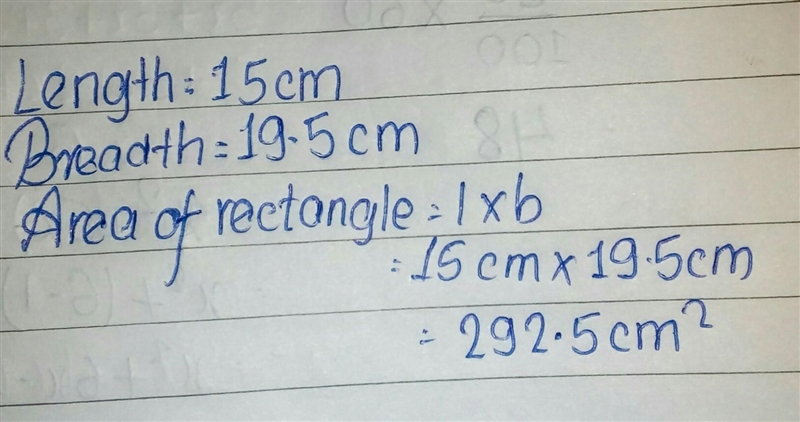 Length = 15cm
Breadth = 19.5cm
Area of rectangle = l x b
= 15 cm x 19.5cm
= 292.5cm²